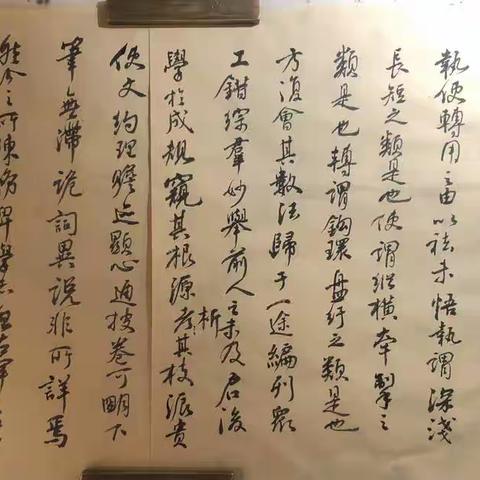 執使轉用之由以祛未悟執謂深淺
長短之類是也使謂縱橫牽掣之
類是也轉謂鈎環盤紆之類是也
方復會其數法歸于一途編列衆
工錯綜羣妙舉前人之未及启後
析
學於成規窺其根源其枝派貴
使文約理贍迹顯心通披卷可明下
筆無滯詭詞異說非所詳焉
然今之所陳務裨學者